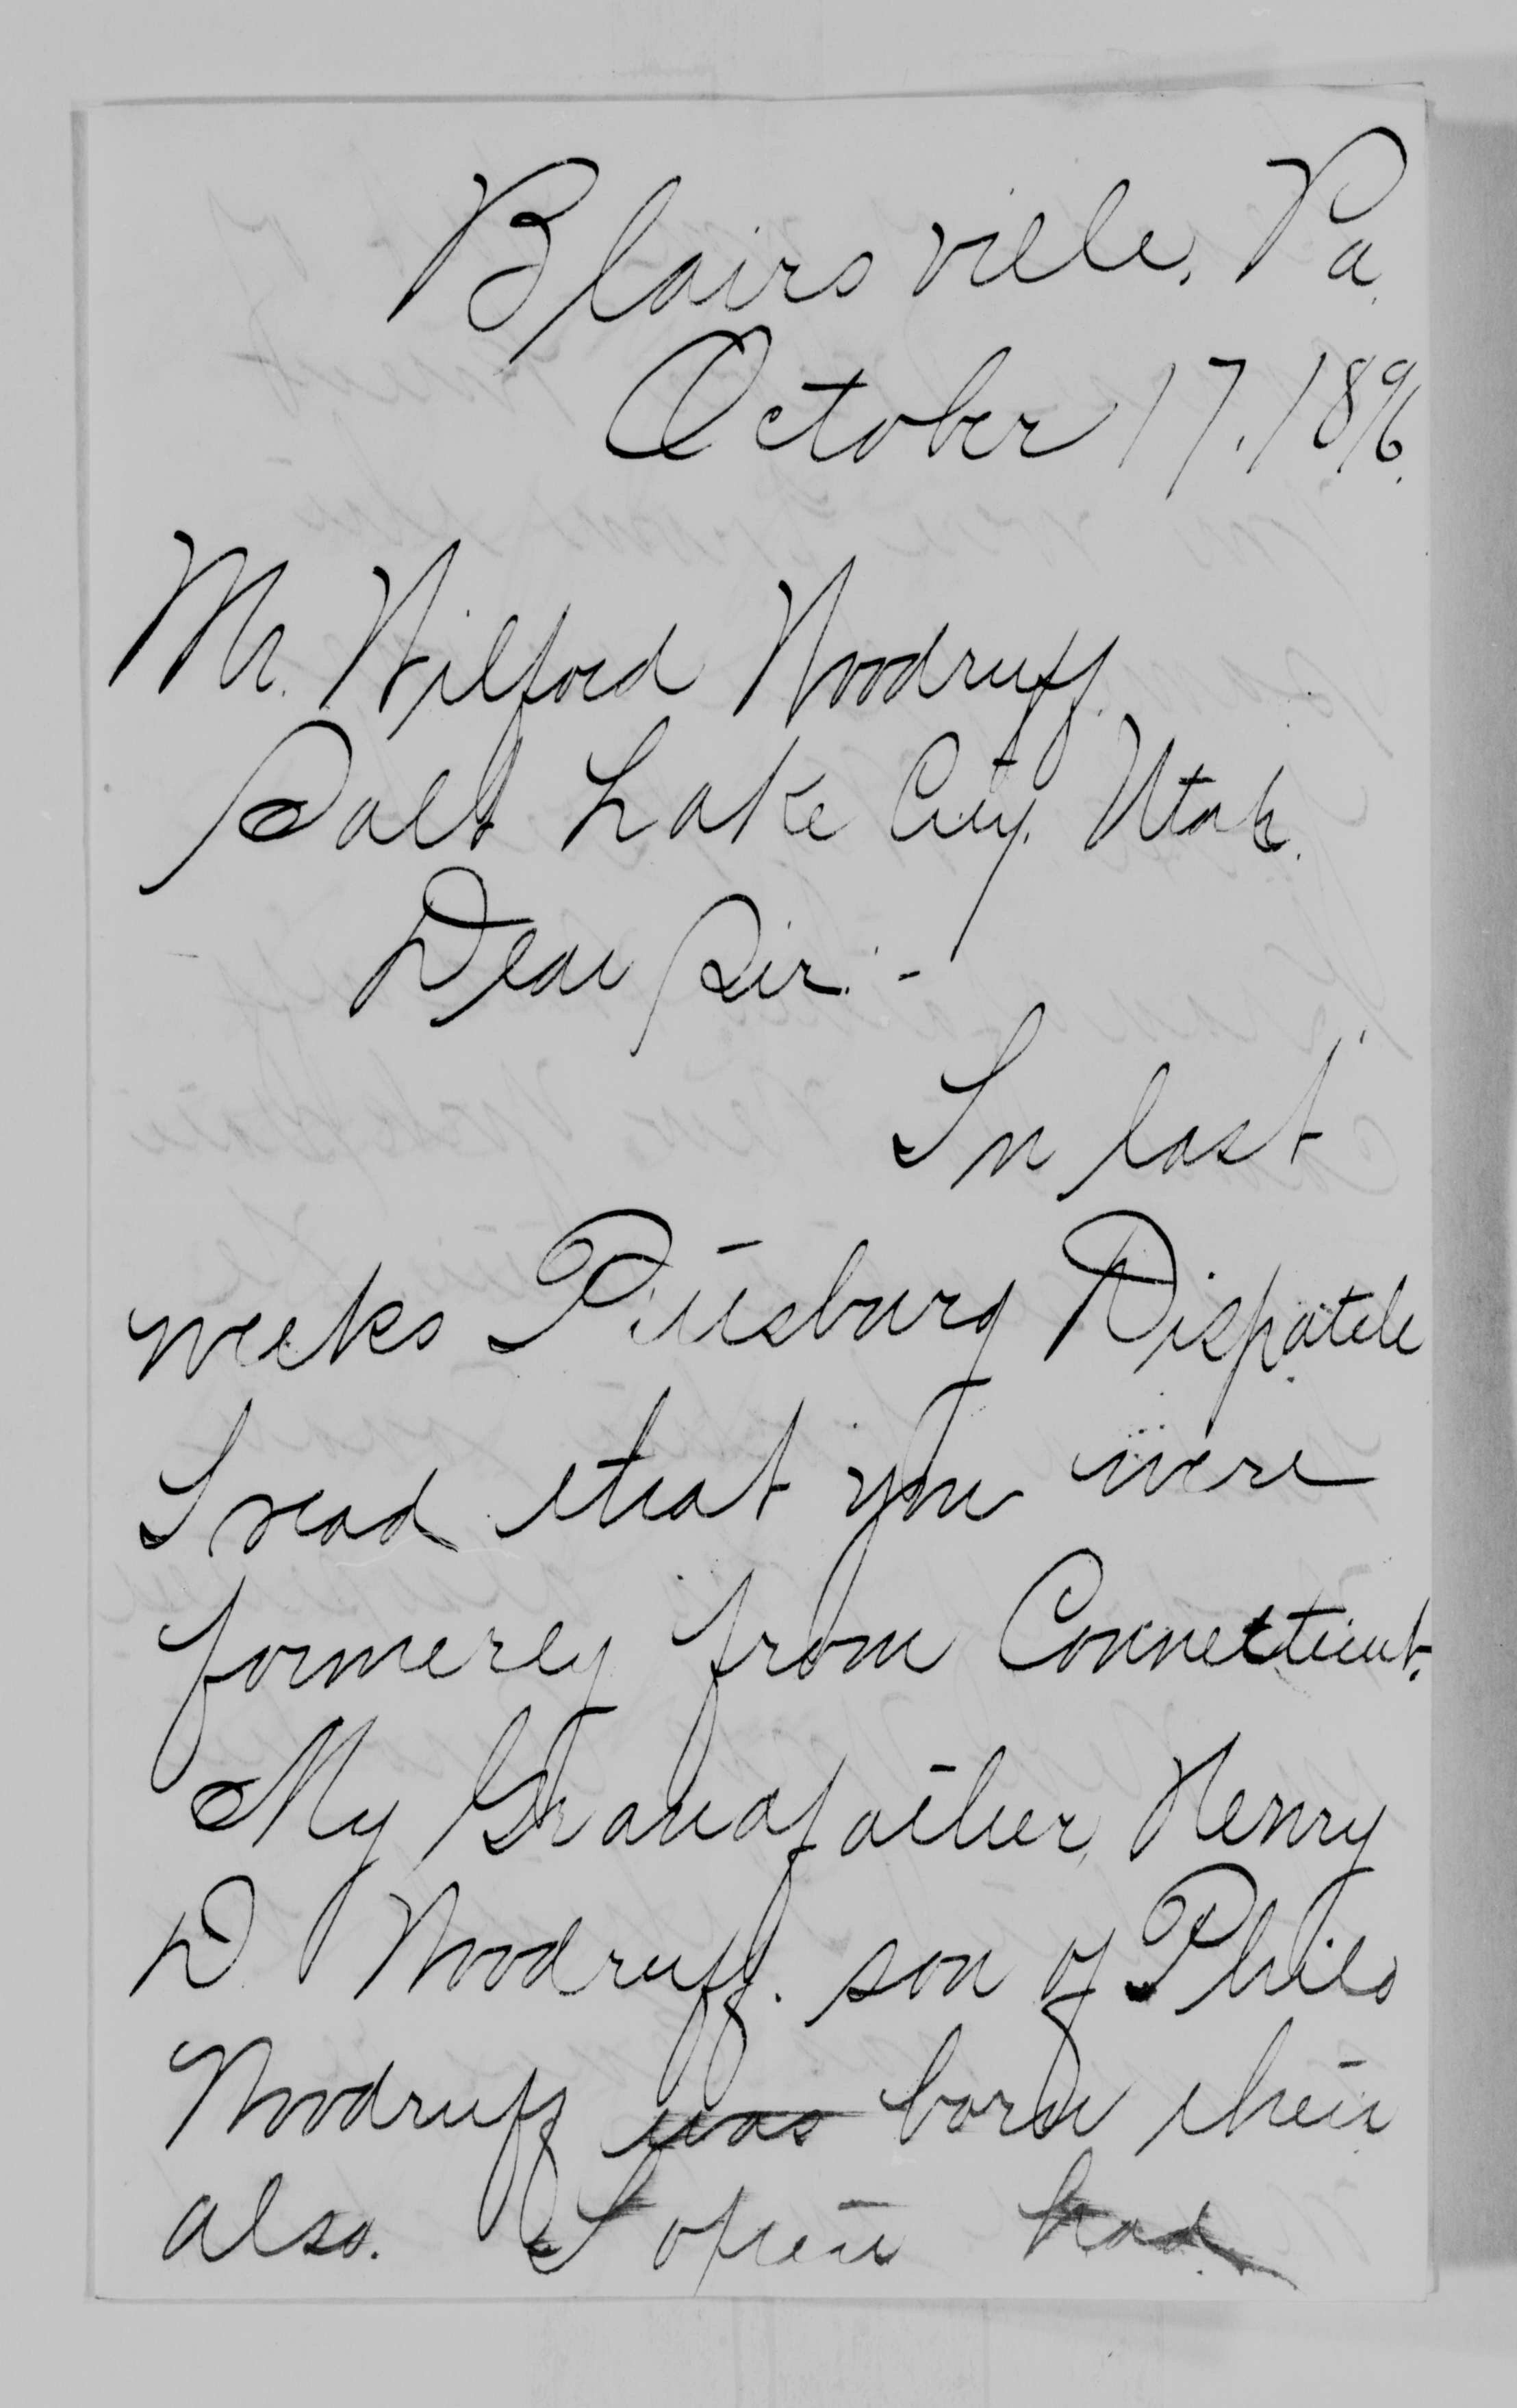 Blairsville, Pa.
October 17. 1896.
Mr. Wilford Woodruff.
Salt Lake City. Utah.
Dear Sir:-
In last
weeks Pittsburg Dispatch
I read that you were
formerly from Connecticut.
My Grandfather, Henry
D. Woodruff. son of Philo
Woodruff was born their
also. I often had